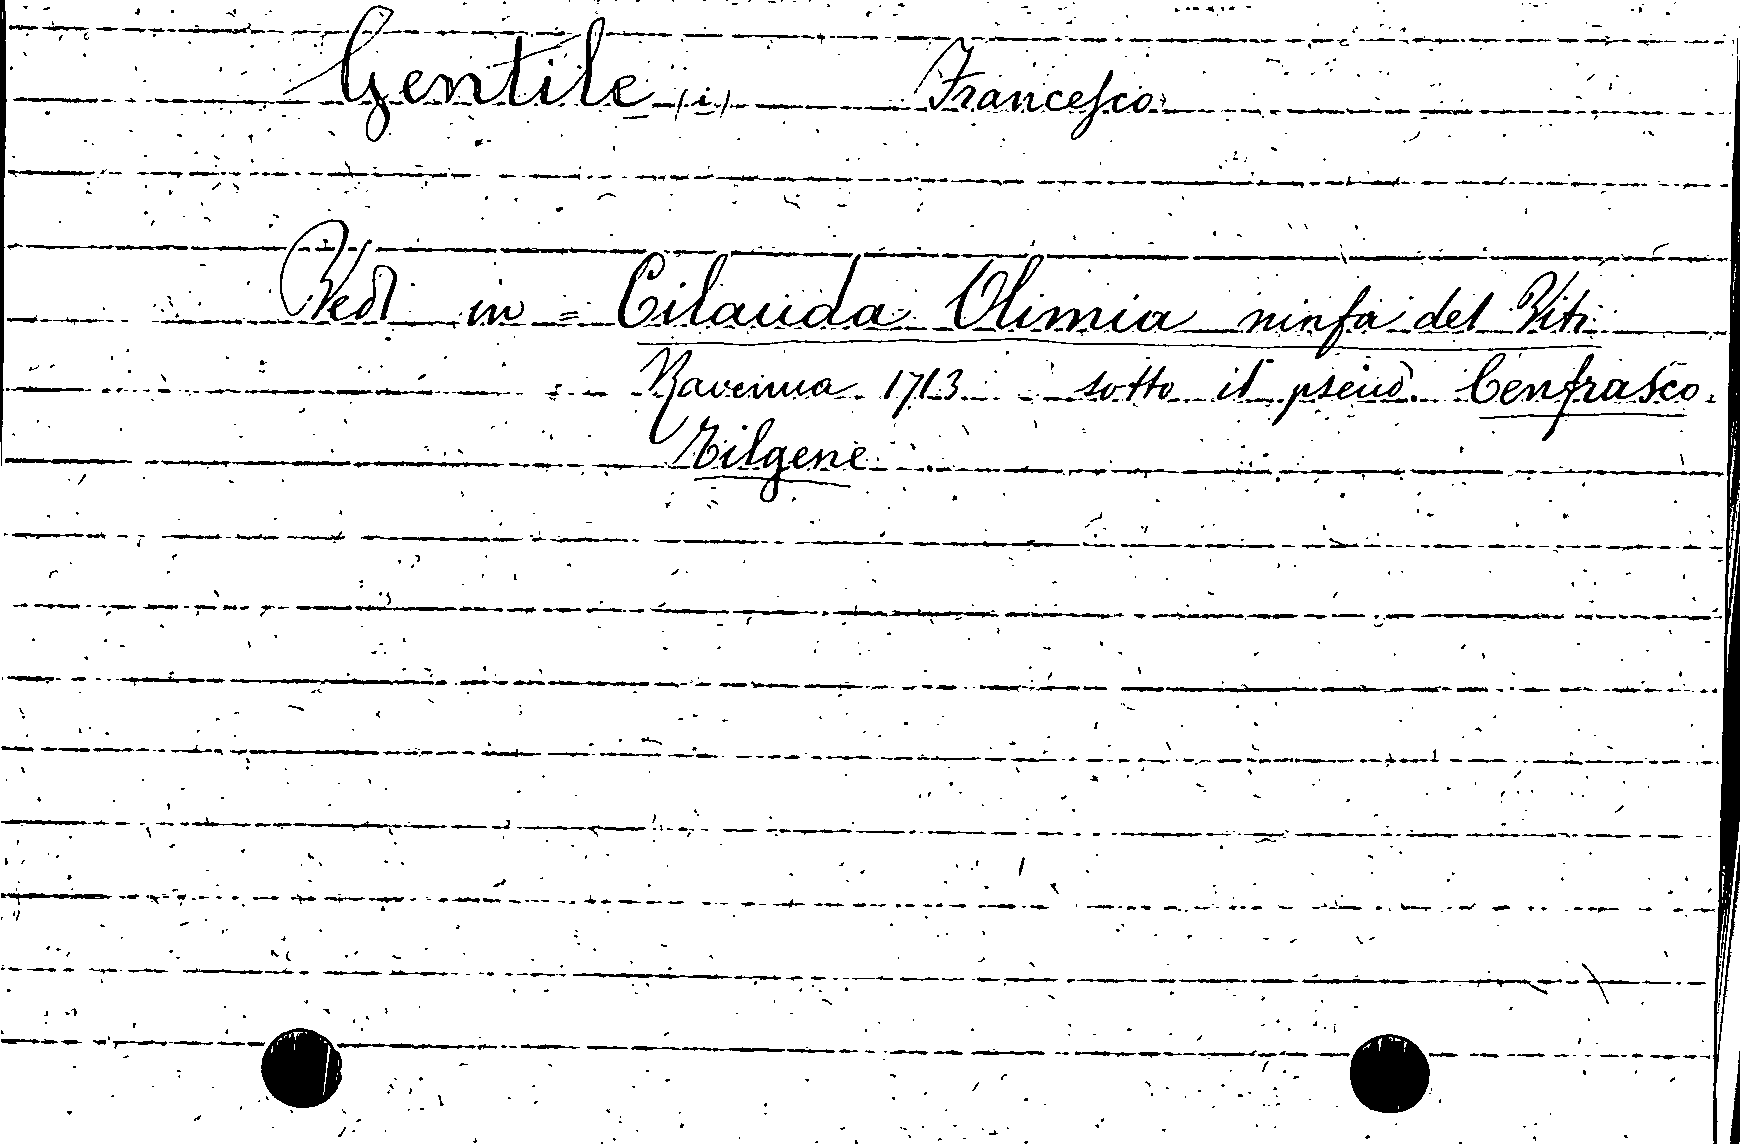 Gentile (i) Francesco
Vedi in = Cilauda Olimia ninfa del Viti
Ravenna 1713 sotto il pseud. Cenfrasco
Tilgene